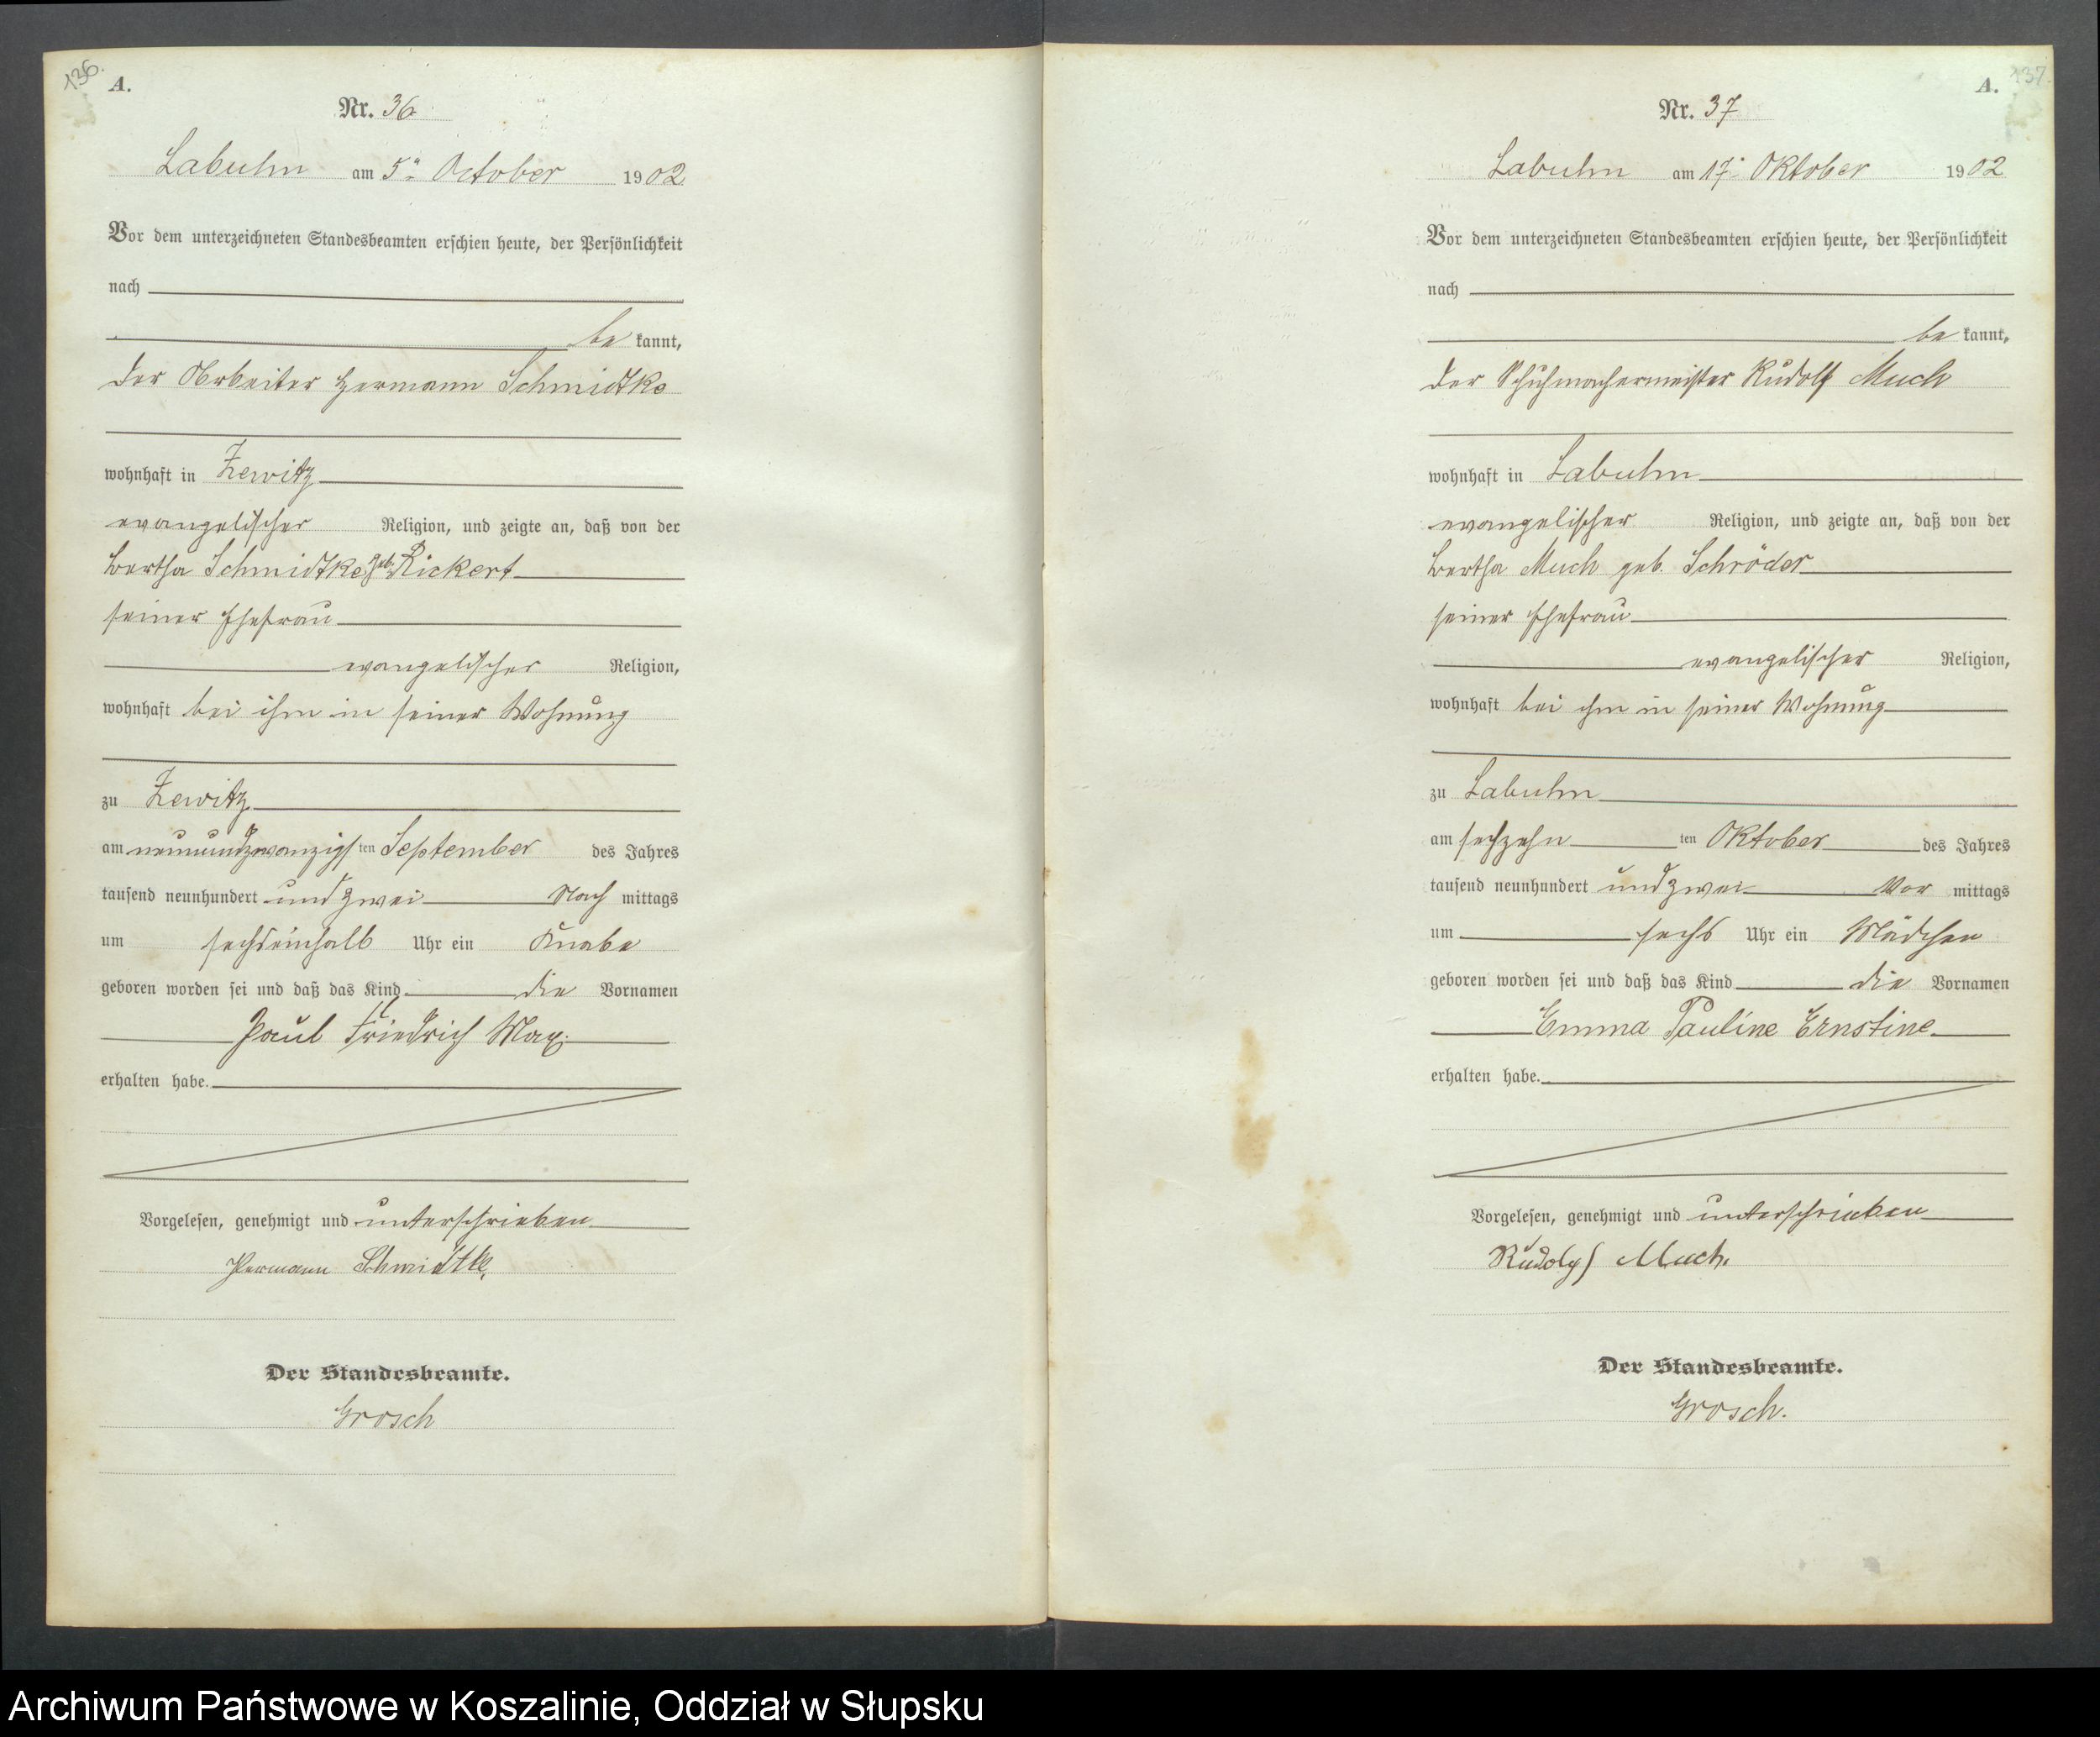 136.
A.
Nr. 36
Labuhn am 5ten October 1902
Vor dem unterzeichneten Standesbeamten erschien heute, der Persönlichkeit
nach
be kannt,
der Arbeiter Hermann Schmidtke
wohnhaft in Zewitz
evangelischer Religion, und zeigte an, daß von der
Bertha Schmidtke, geb. Rickert
seiner Ehefrau
evangelischer Religion,
wohnhaft bei ihm in seiner Wohnung
zu Zewitz
am neunundzwanzigsten September des Jahres
tausend neunhundert und zwei Nach mittags
um sechseinhalb Uhr ein Knabe
geboren worden sei und daß das Kind die Vornamen
Paul Friedrich Max
erhalten habe.
Vorgelesen, genehmigt und unterschrieben
Hermann Schmidtke
Der Standesbeamte.
Grosch
137.
A.
Nr. 37
Labuhn am 17. Oktober 1902
Vor dem unterzeichneten Standesbeamten erschien heute, der Persönlichkeit
nach
be kannt,
der Schuhmachermeister Rudolf Much
wohnhaft in Labuhn
evangelischer Religion, und zeigte an, daß von der
Bertha Much geb. Schröder
seiner Ehefrau
evangelischer Religion,
wohnhaft bei ihm in seiner Wohnung
zu Labuhn
am sechzehn ten Oktober des Jahres
tausend neunhundert und zwei Vor mittags
um sechs Uhr ein Mädchen
geboren worden sei und daß das Kind die Vornamen
Emma Pauline Ernstine
erhalten habe.
Vorgelesen, genehmigt und unterschrieben
Rudolf Much.
Der Standesbeamte.
Grosch.
Archiwum Państwowe w Koszalinie, Oddział w Słupsku